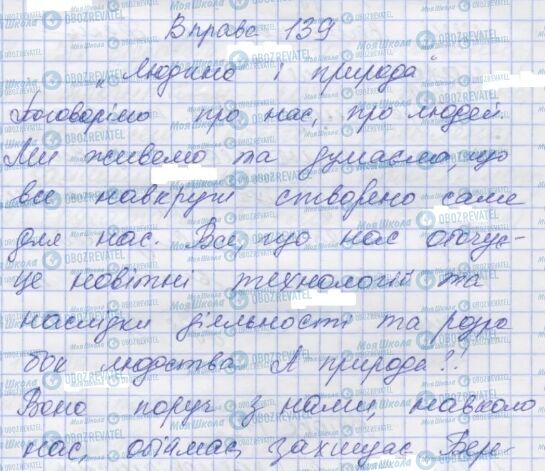 Вправа 139
„Людина і природа"
Поговорімо про нас, про людей.
Ми живемо та думаємо, що
все навкруги створено саме
для нас. Все, що нас оточує-
це новітні технології та
наслідки діяльності та розро
бок людства. А природа?!
Вона поруч з нами, навколо
нас, обіймає, захищає. Бере-